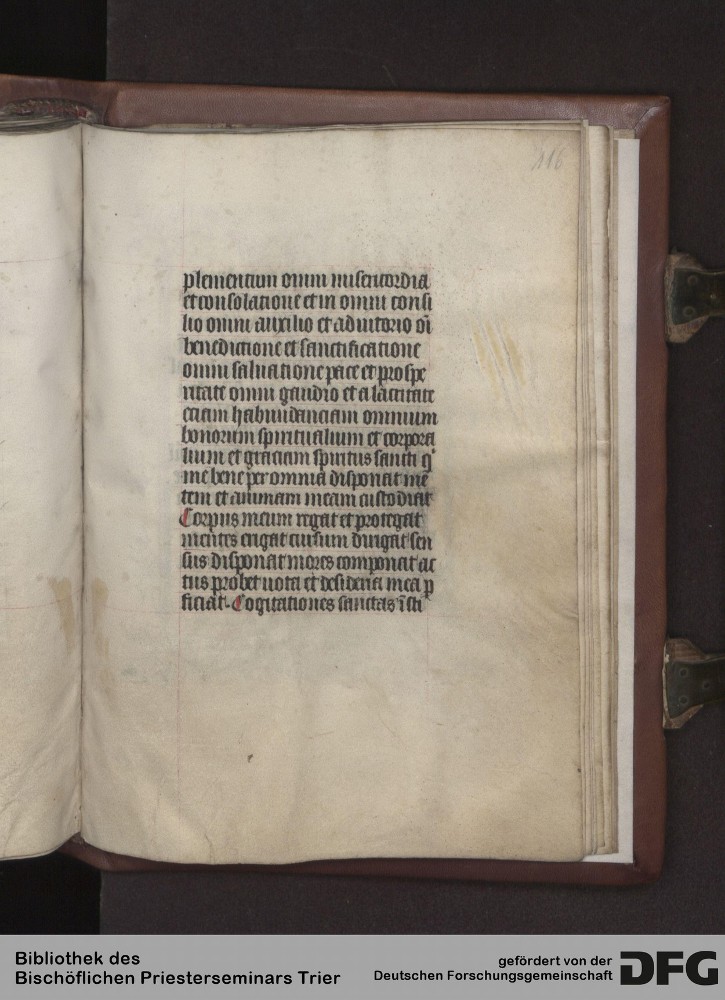 116
plementum omni misericordia
et consolatione et in omni consi
lio omni auxilio et adiutorio oī
benedictione et sanctificatione
omni saluatione pace et prospe
ritate omni gaudio et alacritate
etiam habundanciam omnium
bonorum spiritualium et corpora
lium et graciam spiritus sancti q̄
me bene per omnia disponat mē
tem et animam meam custodiat
Corpus meum regat et protegat
mentes erigat cursum dirigat sen
sus disponat mores componat ac
tus probet uota et desideria mea p
ficiat. Cogitationes sanctas īsti
Bibliothek des
Bischöflichen Priesterseminars Trier
gefördert von der
Deutschen Forschungsgemeinschaft
DFG